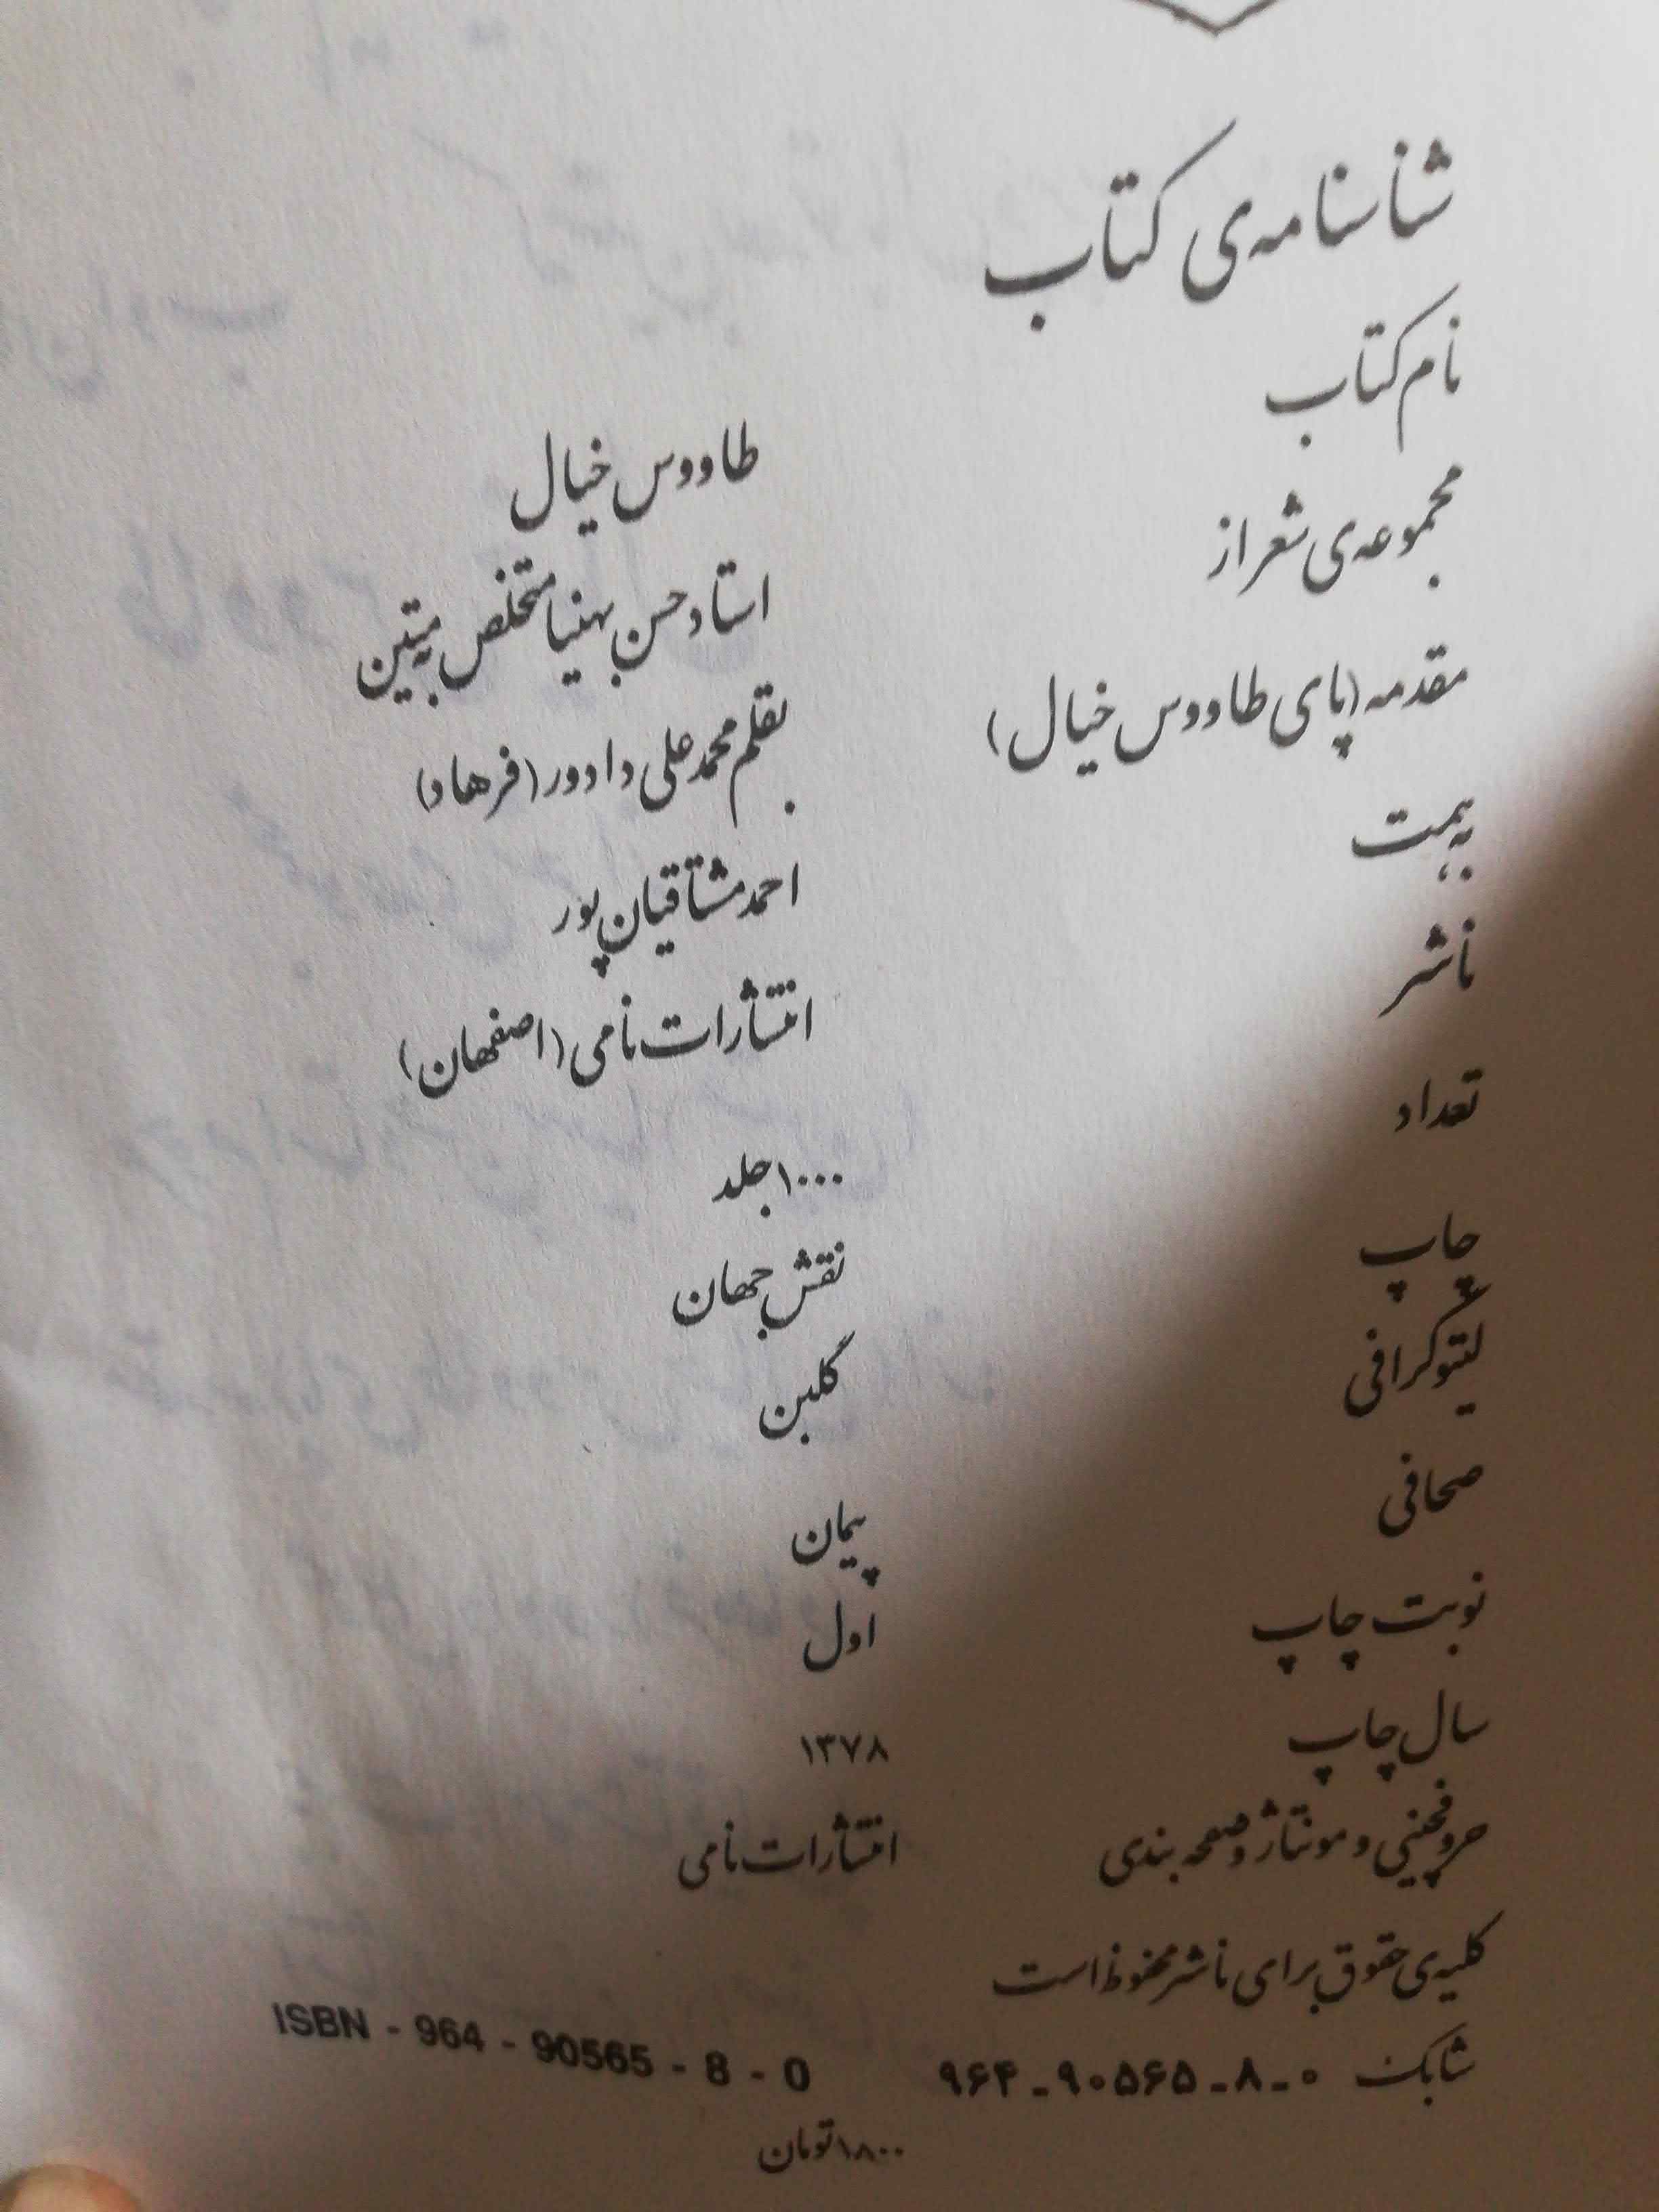 شناسنامه‌ی کتاب
نام کتاب طاووس خیال
مجموعه‌ی شعر از استاد حسن بهنیا متخلص به متین
مقدمه (پای طاووس خیال) بقلم محمدعلی دادور (فرهاد)
به همت احمد مشتاقیان‌پور
ناشر انتشارات نامی (اصفهان)
تعداد ۱۰۰۰ جلد
چاپ نقش جهان
لیتوگرافی گلبن
صحافی پیمان
نوبت چاپ اول
سال چاپ ۱۳۷۸
حروفچینی و مونتاژ و صفحه‌بندی انتشارات نامی
کلیه‌ی حقوق برای ناشر محفوظ است
شابک ۰-۸-۹۰۵۶۵-۹۶۴ ISBN - 964 - 90565 - 8 - 0
۱۸۰۰ تومان